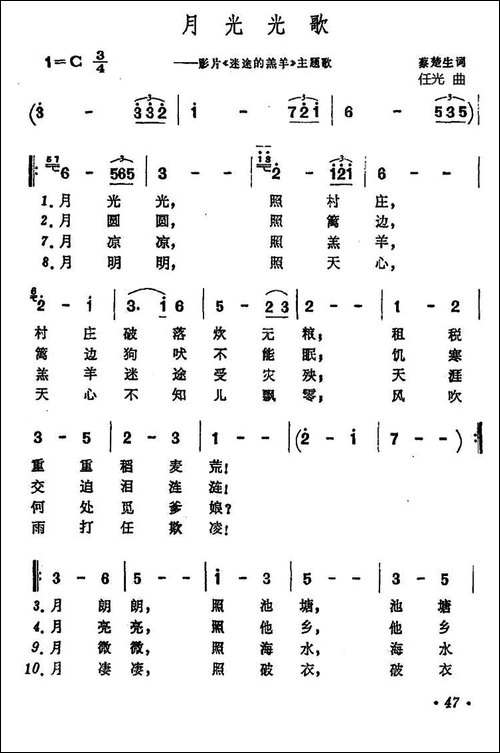 月光光歌
1=C 3/4
——影片《迷途的羔羊》主题歌
蔡楚生词
任光 曲
(3 - 332 | 2 - i | 1 - 721 | 6 - 535)
6 - 565 | 3 - - | 2 - 121 | 6 - -
1.月光光， 照村庄，
2.月圆圆， 照篱边，
7.月凉凉， 照羔羊，
8.月明明， 照天心，
2 - i | 3. i 6 | 5 - 23 | i - 2
村庄破落炊无粮，租税
篱边狗吠不能眠，饥寒
羔羊迷途受灾殃，天涯
天心不知儿飘零，风吹
3 - 5 | 2 - 3 | 1 - - | (2 - i | 7 - -)
重重稻麦荒！
交迫泪涟涟！
何处觅爹娘？
雨打任欺凌！
3 - 6 | 5 - - | i - 3 | 5 - - | 3 - 5
3.月朗朗， 照池塘， 池塘
4.月亮亮， 照他乡， 他乡
9.月微微， 照海水， 海水
10.月凄凄， 照破衣， 破衣
• 47 •